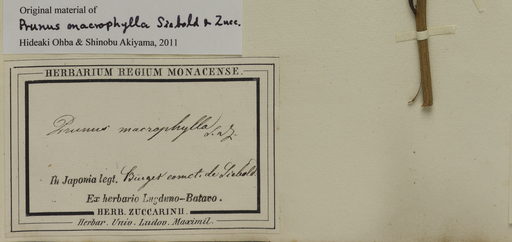 Original material of
Prunus macrophylla Siebold & Zucc.
Hideaki Ohba & Shinobu Akiyama, 2011
HERBARIUM REGIUM MONACENSE.
Prunus macrophylla S. & Z.
In Japonia legt. Burger comct. de Siebold.
Ex herbario Lugduno-Batavo.
HERB. ZUCCARINII.
Herbar. Univ. Ludov. Maximil.